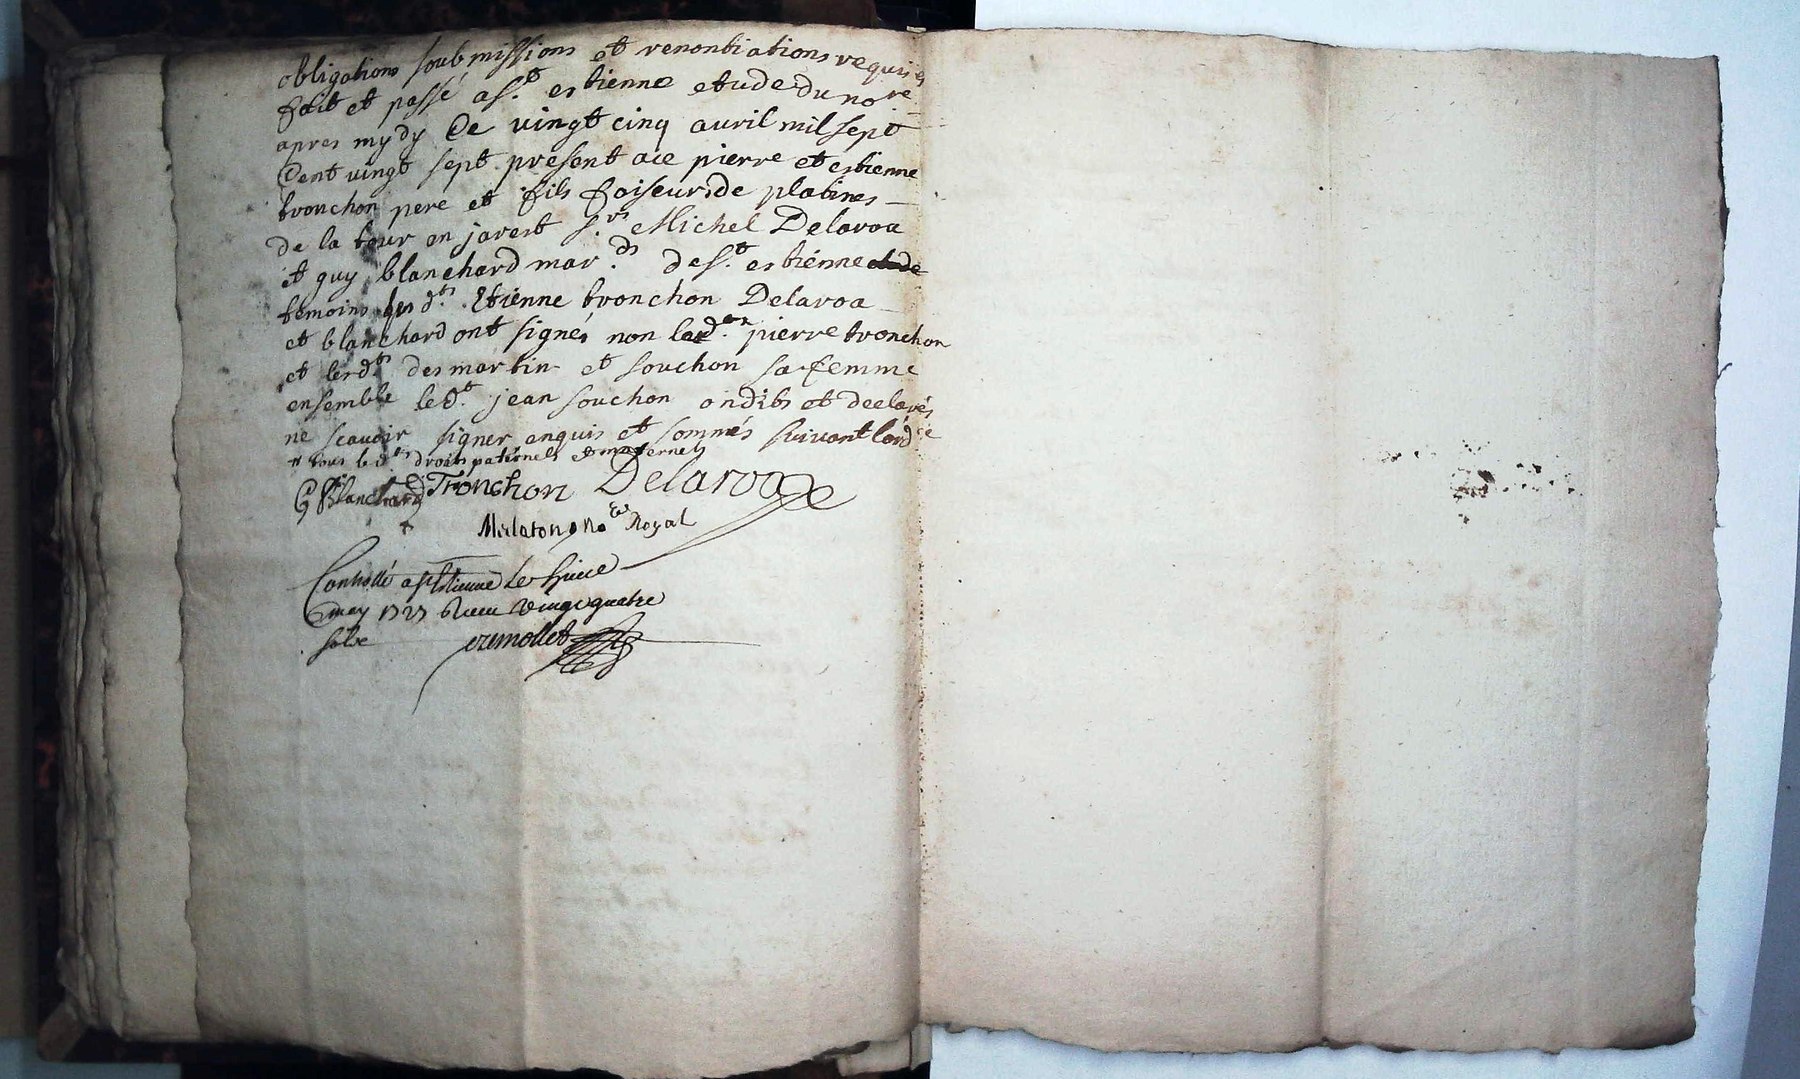 obligations soubmissions et renontiations requises
fait et passé a St. estienne etude du nore
apres mydy le vingt cinq auril mil sept
Cent vingt sept present ace pierre et estienne
tronchon pere et fils faiseurs de platines
de la tour en jarest srs. Michel Delaroa
et guy blanchard mards. de St. estienne
temoins lesdts. Etienne tronchon Delaroa
et blanchard ont signés non led. pierre tronchon
et lesdts desmartin et souchon sa femme
ensemble ledt. jean souchon ondits et declarés
ne scavoir signer enquis et sommés suivant lordce
# tous lesdts droits paternels et maternels
G Blanchard E Tronchon Delaroa
Mulaton, nore Royal
Controllé a St Etienne le
may 1727 Receu vingt quatre
sols